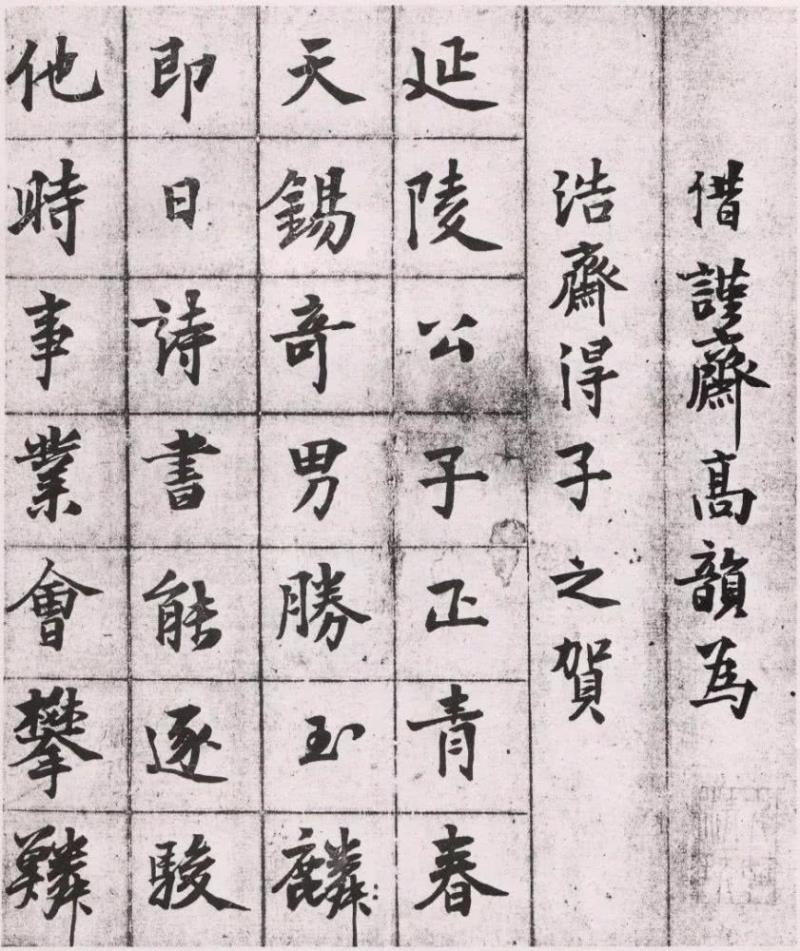 借謹齋髙韻為
浩齋得子之賀
延陵公子正青春
天錫竒男勝玉麟
即日詩書能逐駿
他時事業會攀鱗